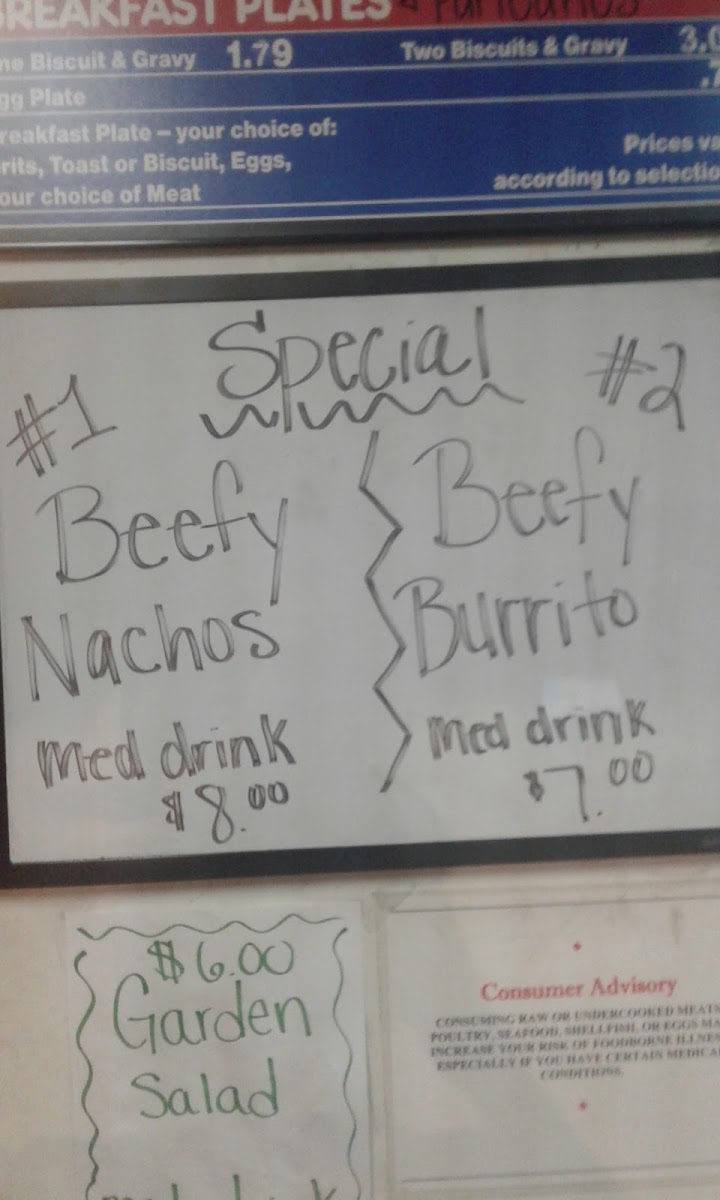 BREAKFAST PLATES
ne Biscuit & Gravy 1.79 Two Biscuits & Gravy 3.0
gg Plate .7
reakfast Plate – your choice of:
rits, Toast or Biscuit, Eggs,
our choice of Meat
Prices va
according to selectio
Special
#1 #2
Beefy
Nachos
med drink
$8.00
Beefy
Burrito
med drink
$7.00
$6.00
Garden
Salad
Consumer Advisory
CONSUMING RAW OR UNDERCOOKED MEATS
POULTRY, SEAFOOD, SHELLFISH, OR EGGS MA
INCREASE YOUR RISK OF FOODBORNE ILLNES
ESPECIALLY IF YOU HAVE CERTAIN MEDICA
CONDITIONS.